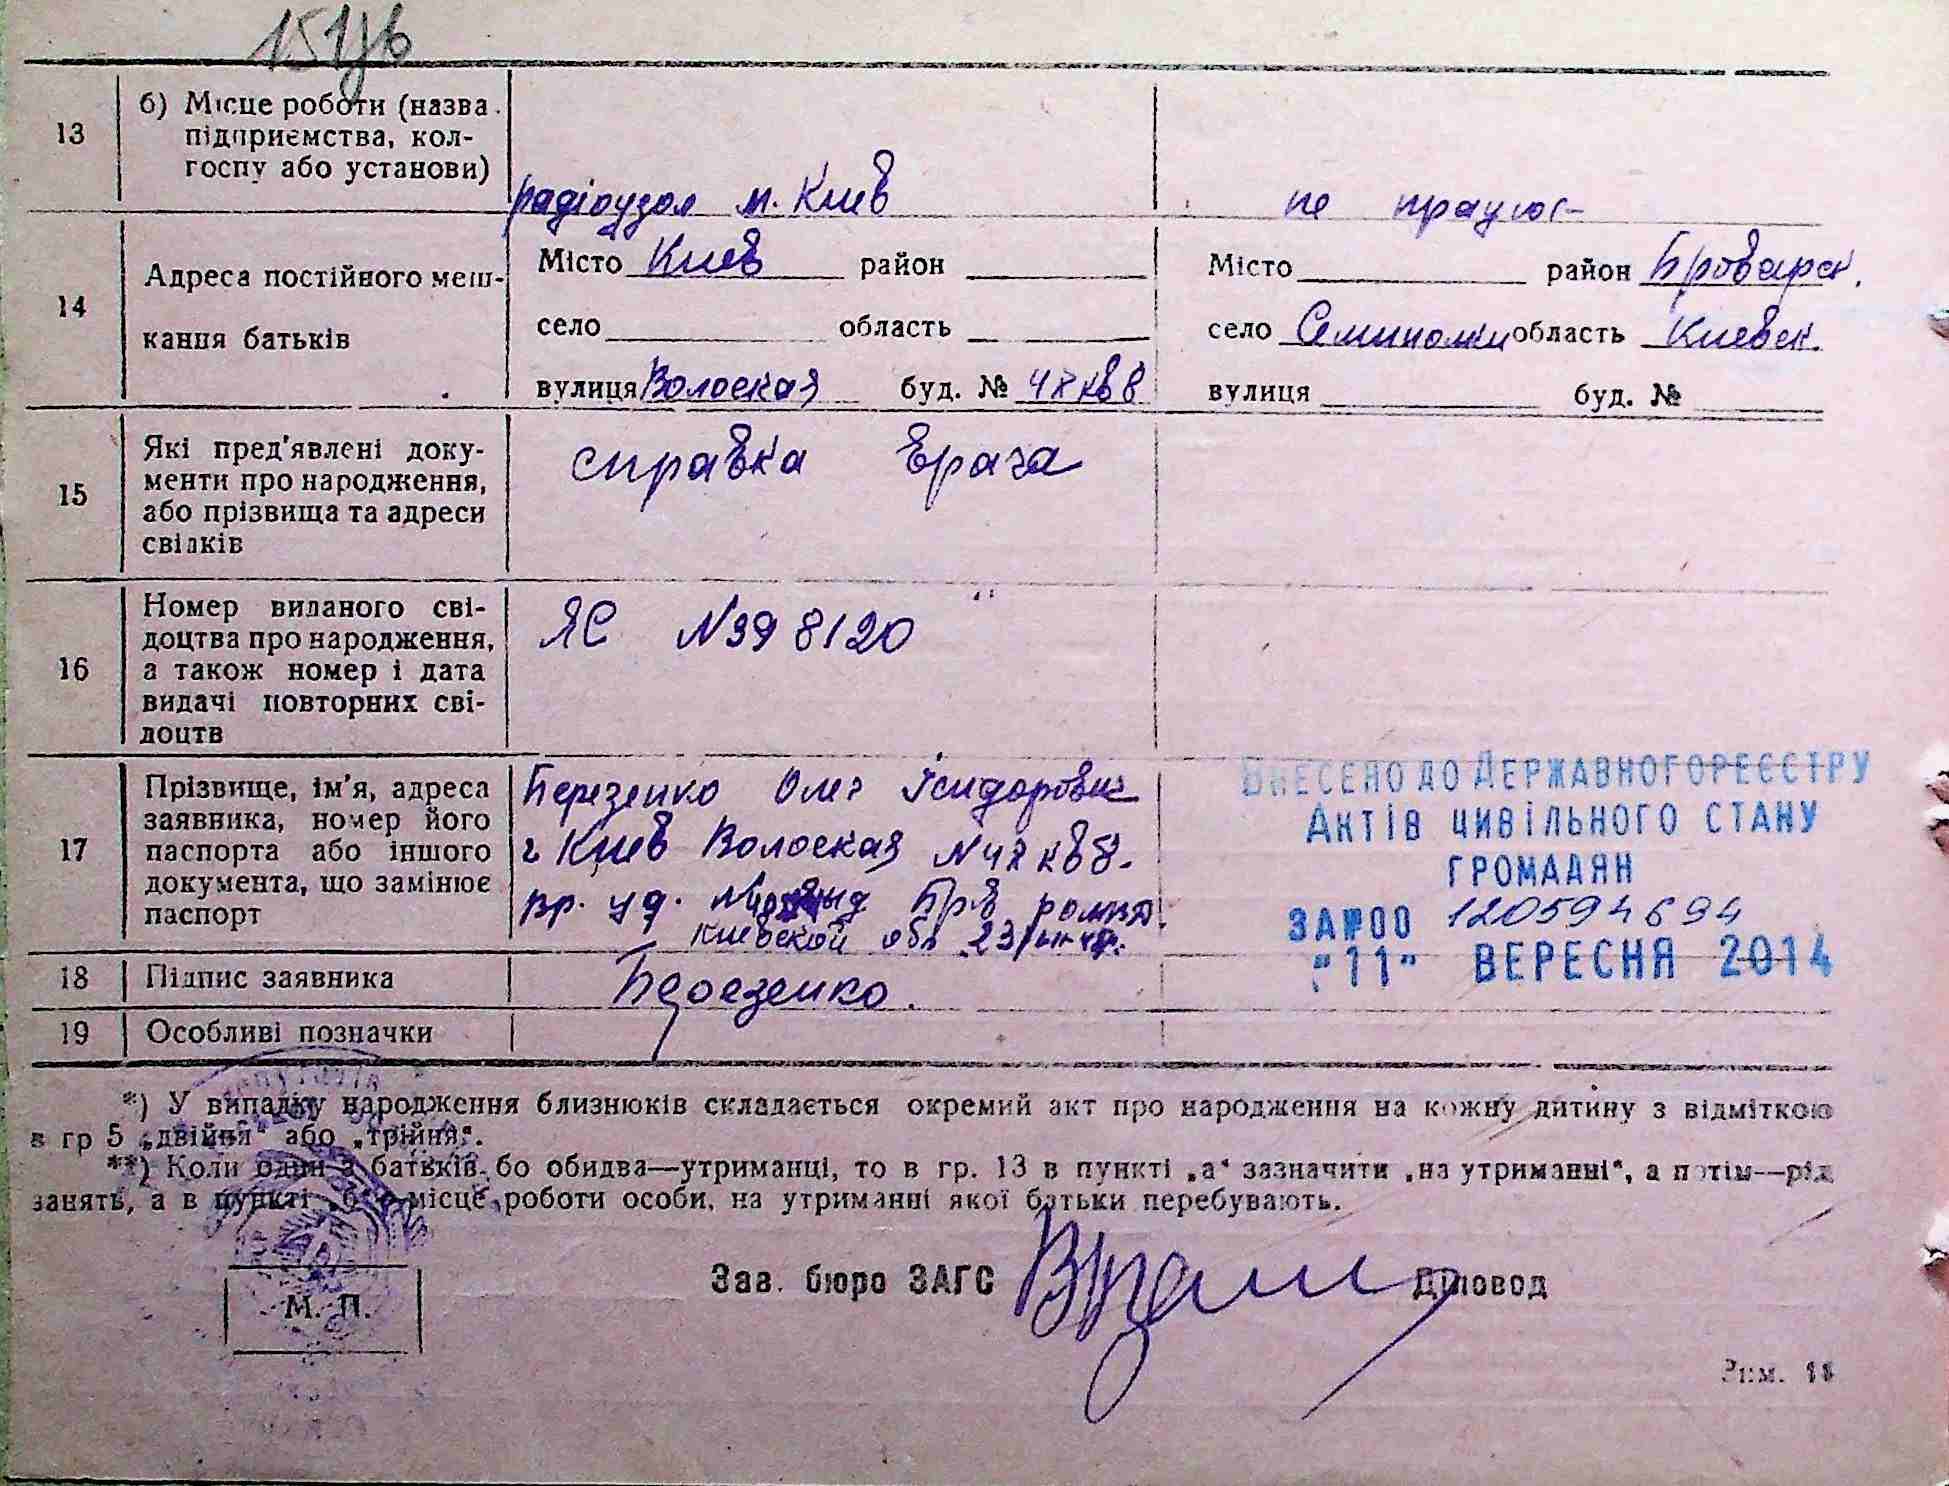 13
б) Місце роботи (назва
підприємства, кол-
госпу або установи)
радіоузол м. Киев
не працює
14
Адреса постійного меш-
кання батьків
Місто Киев район
село область
вулиця Волоская буд. № 48 кв 8
Місто район Броварск.
село Семиполки область Киевск.
вулиця буд. №
15
Які пред'явлені доку-
менти про народження,
або прізвища та адреси
свідків
справка врача
16
Номер виданого сві-
доцтва про народження,
а також номер і дата
видачі повторних сві-
доцтв
ЯС N398120
17
Прізвище, ім'я, адреса
заявника, номер його
паспорта або іншого
документа, що замінює
паспорт
Березенко Олег Ісидорович
г Киев Волоская N48 кв 8.
вр. уд. Бров
Киевской обл 23
ВНЕСЕНО ДО ДЕРЖАВНОГО РЕЄСТРУ
АКТІВ ЦИВІЛЬНОГО СТАНУ
ГРОМАДЯН
ЗА№00 120594694
"11" ВЕРЕСНЯ 2014
18
Підпис заявника
Березенко.
19
Особливі позначки
*) У випадку народження близнюків складається окремий акт про народження на кожну дитину з відміткою
в гр 5 „двійня“ або „трійня“.
**) Коли один з батьків бо обидва—утриманці, то в гр. 13 в пункті „а“ зазначити „на утриманні“, а потім—рід
занять, а в пункті „б“ місце роботи особи, на утриманні якої батьки перебувають.
Зав. бюро ЗАГС
Діловод
М. П.